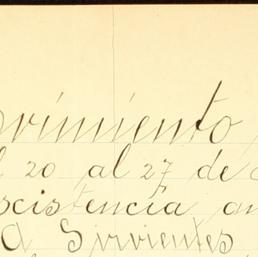 ovimiento
l 20 al 27 de
scistencia an
a Sirvientes